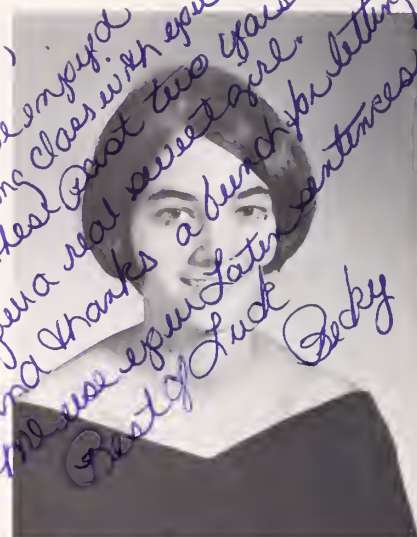 ,
enjoyed
class with you
these past two years
a real sweet girl.
thanks a bunch for letting
me use your Latin sentences
Best of Luck
Becky